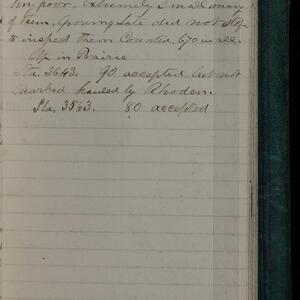 poor, Extremely small many
of them, Growing Late did not stop
to inspect them Counted, 670 in all.
Up in Prairie
Sta. 3643. 90 accepted but not
marked hauled by Rhoden.
Sta, 3563. 80 accepted